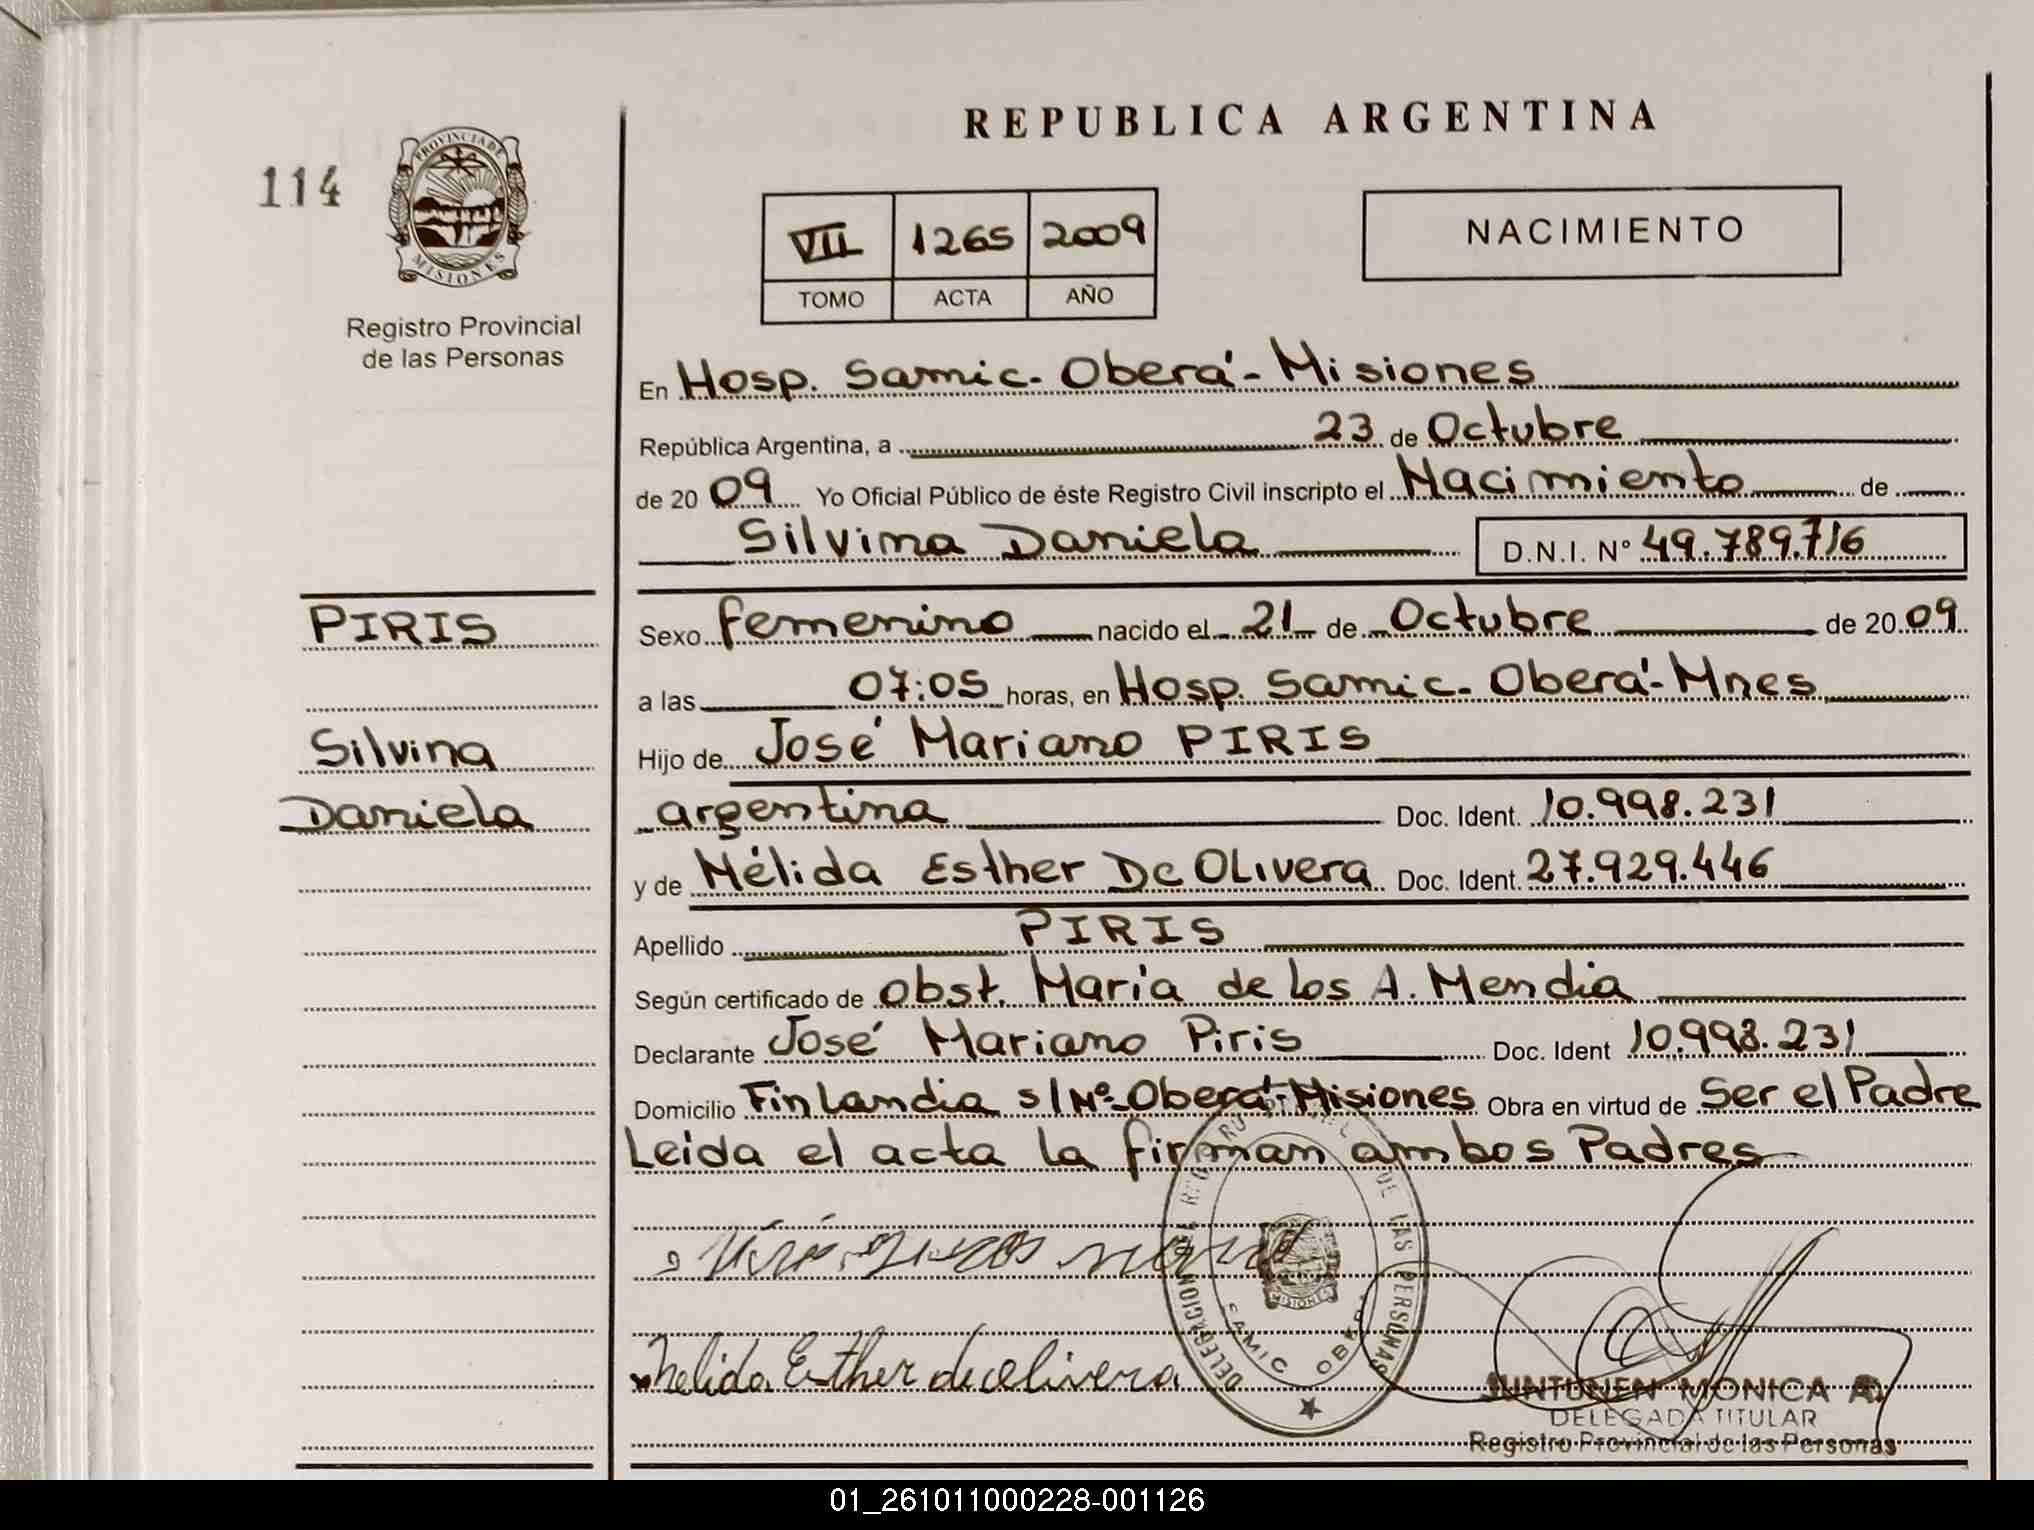 REPUBLICA ARGENTINA
114
PROVINCIA DE
MISIONES
Registro Provincial
de las Personas
VII 1265 2009
TOMO ACTA AÑO
NACIMIENTO
En Hosp. Samic. Oberá - Misiones
República Argentina, a 23 de Octubre
de 20 09 Yo Oficial Público de éste Registro Civil inscripto el Nacimiento de
Silvina Daniela D.N.I. N° 49.789.716
PIRIS
Silvina
Daniela
Sexo femenino nacido el 21 de Octubre de 20 09
a las 07:05 horas, en Hosp. Samic. Oberá - Mnes
Hijo de José Mariano PIRIS
argentina Doc. Ident. 10.998.231
y de Nélida Esther De OLivera Doc. Ident. 27.929.446
Apellido PIRIS
Según certificado de obst. María de los A. Mendia
Declarante José Mariano Piris Doc. Ident 10.998.231
Domicilio Finlandia s/Nº - Oberá - Misiones Obra en virtud de Ser el Padre
Leída el acta la firman ambos Padres
Nelida Esther de olivera
DELEGACION REG. DE LAS PERSONAS
SAMIC OBERA
MISIONES
JUNTUNEN MONICA A.
DELEGADA TITULAR
Registro Provincial de las Personas
01_261011000228-001126